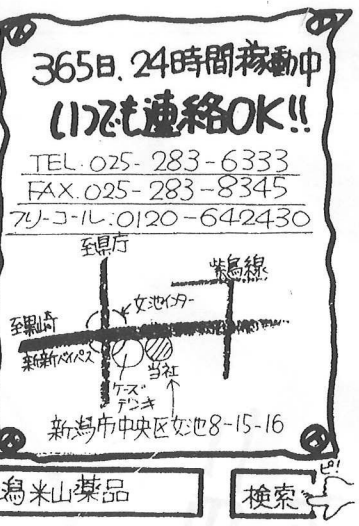 365日、24時間稼動中
いつでも連絡OK!!
TEL.025-283-6333
FAX.025-283-8345
フリーコール:0120-642430
至県庁
紫鳥線
女池インター
至黒崎
新新バイパス
ケーズデンキ
当社
新潟市中央区女池8-15-16
潟米山薬品
検索
ピ!